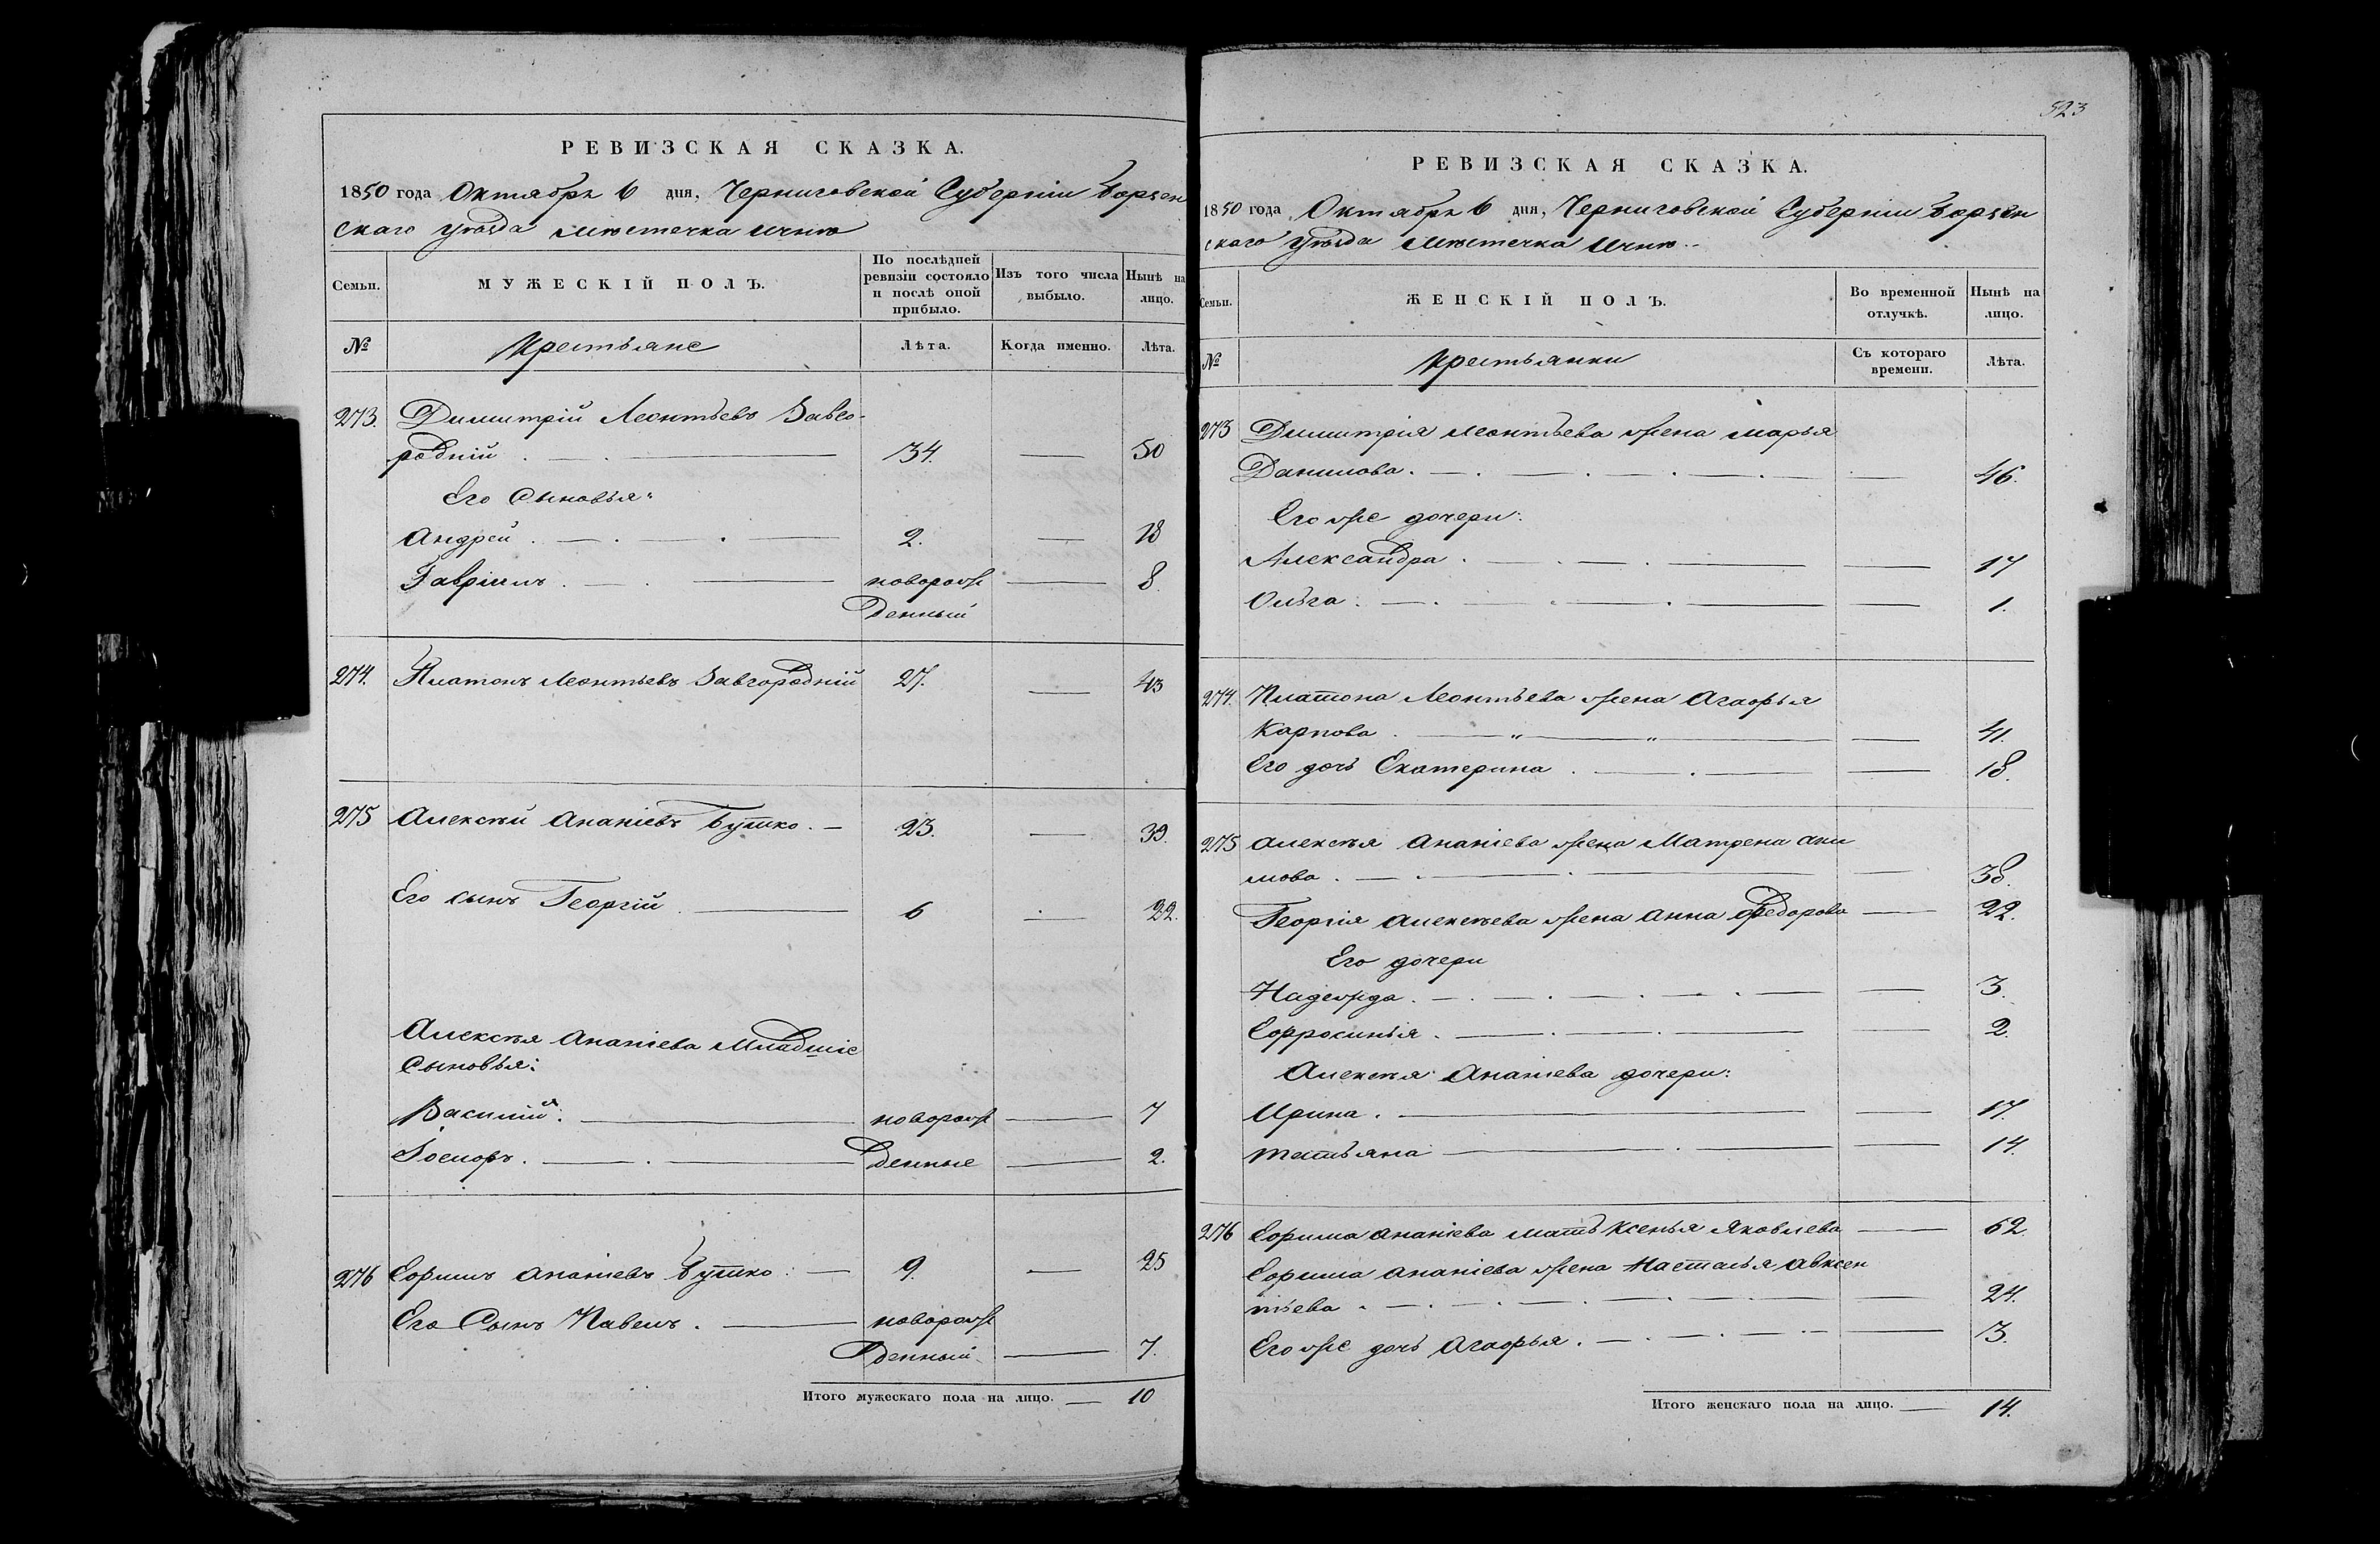 РЕВИЗСКАЯ СКАЗКА.
1850 года Октября 6 дня, Черниговской Губерніи Борзен
скаго Уѣзда мѣстечка Ични
Семьи.
МУЖЕСКІЙ ПОЛЪ.
По послѣдней ревизіи состояло и послѣ оной прибыло.
Изъ того числа выбыло.
Нынѣ на лицо.
№
Крестьяне
Лѣта.
Когда именно.
Лѣта.
273. Димитрій Леонтьевъ Завго-
родній 34. 50
Его Сыновья:
Андрей 2. 18
Гавріилъ новорож 8
денный
274. Платонъ Леонтьевъ Завгородній 27. 43
275 Алексѣй Ананіевъ Бутко. 23. 39.
Его сынъ Георгій 6 22.
Алексѣя Ананіева Младшіе
Сыновья:
Василій новорож 7
денные 2.
276 Ефимъ Ананіевъ Бутко 9. 25
Его Сынъ Павелъ. новорож
денный 7.
Итого мужескаго пола на лицо. 10
523
РЕВИЗСКАЯ СКАЗКА.
1850 года Октября 6 дня, Черниговской Губерніи Борзен
скаго Уѣзда мѣстечка Ични
Семьи.
ЖЕНСКІЙ ПОЛЪ.
Во временной отлучкѣ.
Нынѣ на лицо.
№
Крестьянки
Съ котораго времени.
Лѣта.
273 Димитрія Леонтьева жена Марья
Данилова. 46.
Его же дочери:
Александра 17
Ольга 1.
274. Платона Леонтьева жена Агафья
Карпова 41.
Его дочь Екатерина 18.
275 Алексѣя Ананіева жена Матрена Аки
мова 38.
Георгія Алексѣева жена Анна Федорова 22.
Его дочери
Надежда 3.
Ефросинья 2.
Алексѣя Ананіева дочери:
Ирина. 17.
Татьяна 14.
276 Ефима Ананіева мать Ксенья Яковлева 62.
Ефима Ананіева жена Насталья Авксен
тьева 24.
Его же дочь Агафья. 3.
Итого женскаго пола на лицо. 14.